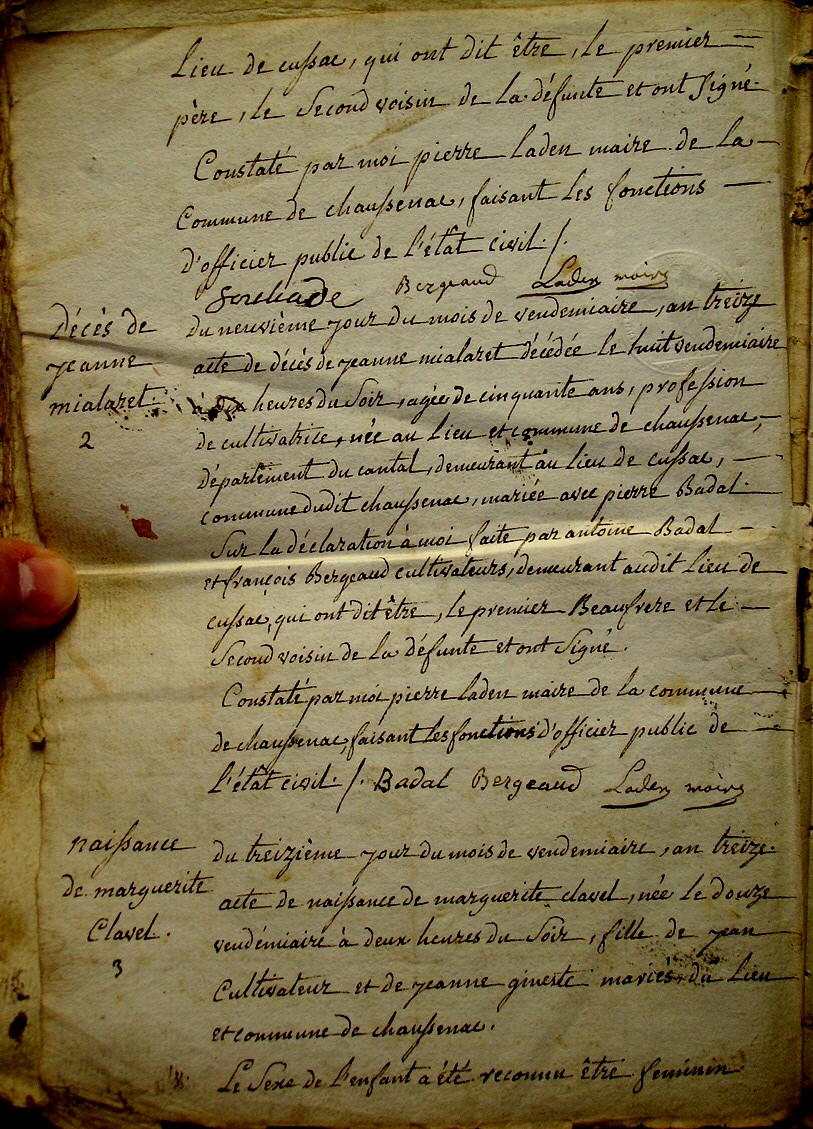 Lieu de cussac, qui ont dit être, le premier
père, le Second voisin de la défunte et ont Signé.
Constaté par moi pierre laden maire de la
Commune de chaussenac, faisant les fonctions
d'officier public de l'état civil ./.
Bergeaud Laden maire
Décès de
jeanne
mialaret.
2
du neuvième jour du mois de vendemiaire, an treize
acte de décès de jeanne mialaret décédée le huit vendemiaire
à dix heures du Soir, agée de cinquante ans, profession
de cultivatrice, née au Lieu et commune de chaussenac,
département du cantal, demeurant au lieu de cussac,
commune dudit chaussenac, mariée avec pierre Badal.
Sur la déclaration à moi faite par antoine Badal
et françois Bergeaud cultivateurs, demeurant audit Lieu de
cussac, qui ont dit être, le premier Beaufrere et le
Second voisin de la défunte et ont Signé.
Constaté par moi pierre laden maire de la commune
de chaussenac, faisant les fonctions d'officier public de
l'état civil ./. Badal Bergeaud Laden maire
naissance
de marguerite
Clavel.
3
du treizième jour du mois de vendemiaire, an treize.
acte de naissance de marguerite clavel, née le douze
vendémiaire à deux heures du Soir, fille de jean
Cultivateur et de jeanne gineste mariés, du Lieu
et commune de chaussenac.
Le Sexe de l'enfant a été reconnu être feminin